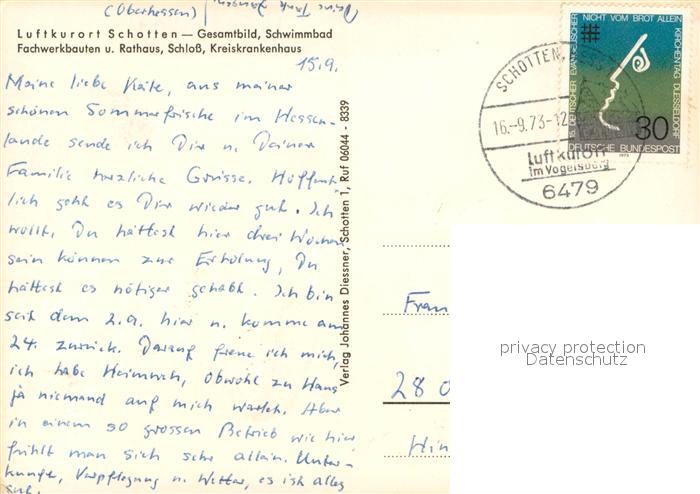 (Oberhessen)
Luftkurort Schotten — Gesamtbild, Schwimmbad
Fachwerkbauten u. Rathaus, Schloß, Kreiskrankenhaus
15.9.
Meine liebe Käte, aus meiner
schönen Sommerfrische im Hessen-
lande sende ich Dir u. Deiner
Familie herzliche Grüsse. Hoffent-
lich geht es Dir wieder gut. Ich
wollt, Du hättest hier drei Wochen
sein können zur Erholung, Du
hättest es nötiger gehabt. Ich bin
seit dem 2.9. hier u. komme am
24. zurück. Darauf freue ich mich,
ich habe Heimweh, obwohl zu Haus
ja niemand auf mich wartet. Aber
in einem so grossen Betrieb wie hier
fühlt man sich sehr allein. Unter-
kunft, Verpflegung u. Wetter, es ist alles
gut.
Verlag Johannes Diessner, Schotten 1, Ruf 06044 - 8339
SCHOTTEN,
16.-9.73-12
Luftkurort
im Vogelsberg
6479
15. DEUTSCHER EVANGELISCHER
NICHT VOM BROT ALLEIN
KIRCHENTAG DUESSELDORF
30
1973
DEUTSCHE BUNDESPOST
Frau
28
Hin
privacy protection
Datenschutz